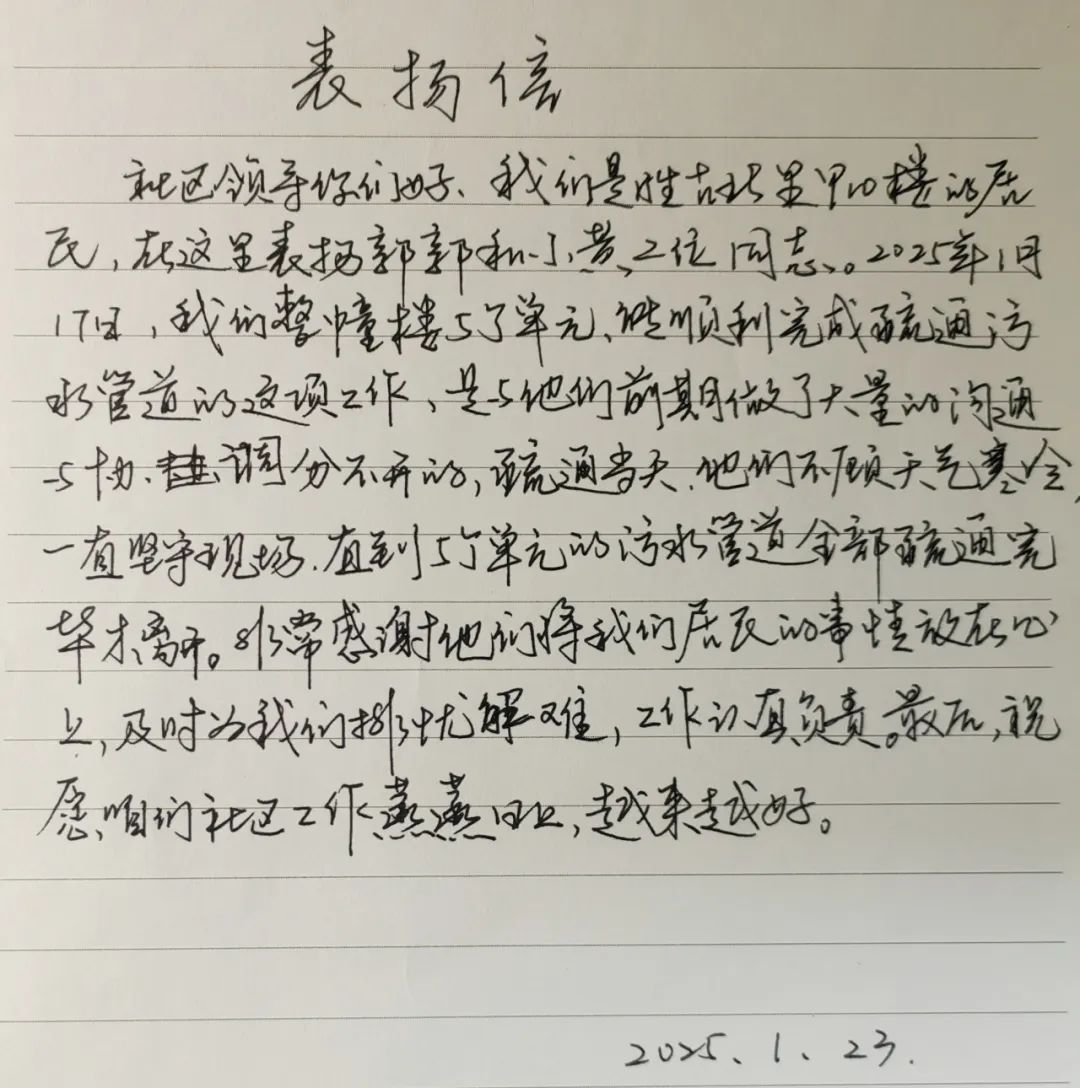 表扬信
社区领导你们好、我们是胜古北里甲10楼的居
民,在这里表扬郭郭和小黄、二位同志。2025年1月
17日,我们整幢楼5个单元、能顺利完成疏通污
水管道的这项工作、是与他们前期做了大量的沟通
与协、调分不开的,疏通当天、他们不顾天气寒冷,
一直坚守现场.直到5个单元的污水管道全部疏通完
毕才离开。非常感谢他们将我们居民的事情放在心
上,及时为我们排忧解难,工作认真负责。最后,祝
愿咱们社区工作蒸蒸日上,越来越好。
2025、1、23.